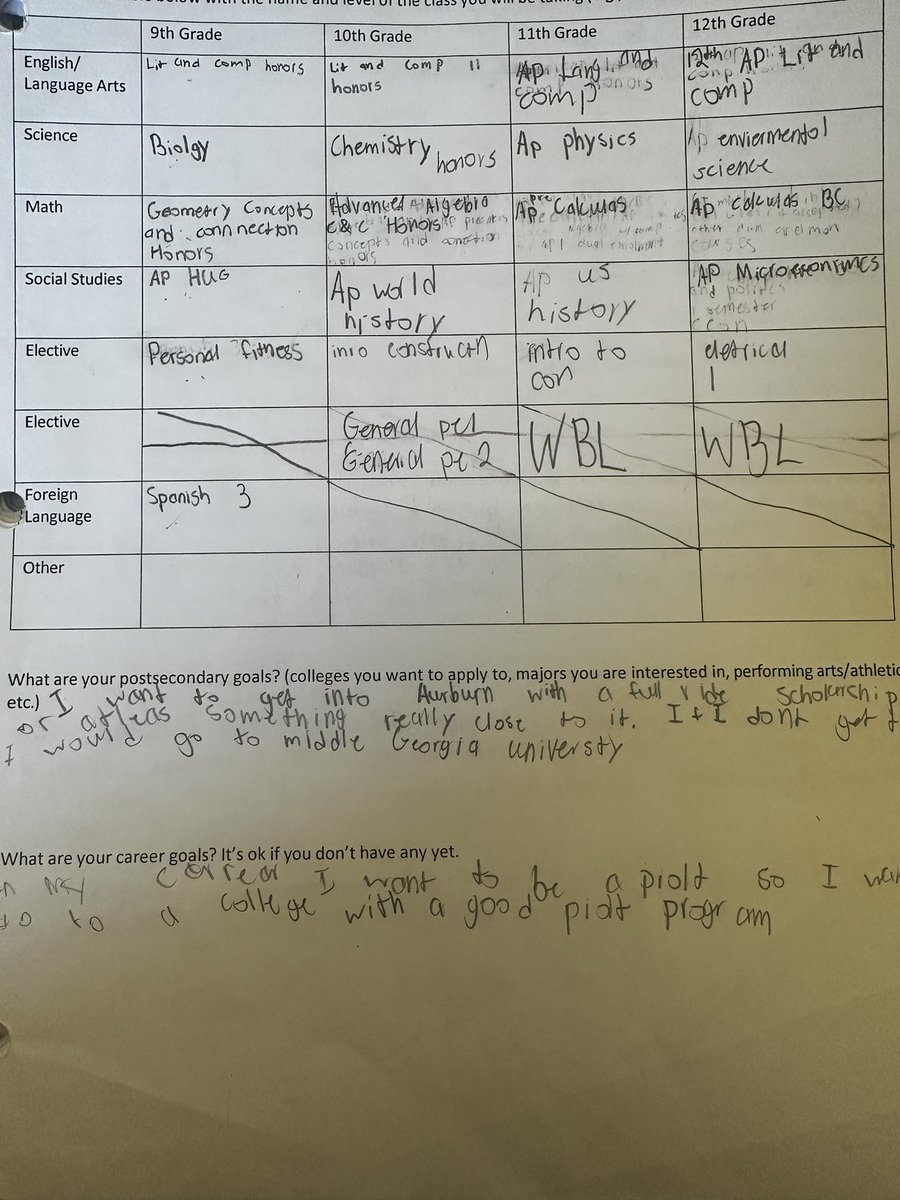 below with the name and level of the class you will be taking
9th Grade 10th Grade 11th Grade 12th Grade
English/
Language Arts
Lit and comp honors
Lit and comp 11
honors
Ap Lang and
comp
12th AP Lit and
comp
Science
Biolgy
Chemistry
honors
Ap physics
Ap enviermental
science
Math
Geometry Concepts
and connnection
Honors
Advanced Algebra
C&C Honors
concepts and
honors
Ap pre Calculas
Ap calculas BC
Social Studies
AP HUG
Ap world
history
Ap us
history
AP Microeconimcs
semester
Elective
Personal fitness
intro constructn
intro to
con
eletrical
1
Elective
General pe1
General pe 2
WBL
WBL
Foreign
Language
Spanish 3
Other
What are your postsecondary goals? (colleges you want to apply to, majors you are interested in, performing arts/athletic
etc.) I want to get into Aurburn with a full ride scholarship
or atleas something really close to it. If I dont get
I would go to middle Georgia universty
What are your career goals? It's ok if you don't have any yet.
my correar I want to be a piolt so I
to a college with a good piolt program